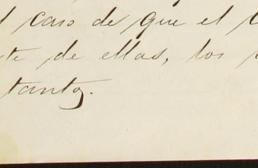 caso de que el
de ellas, los
tanto.